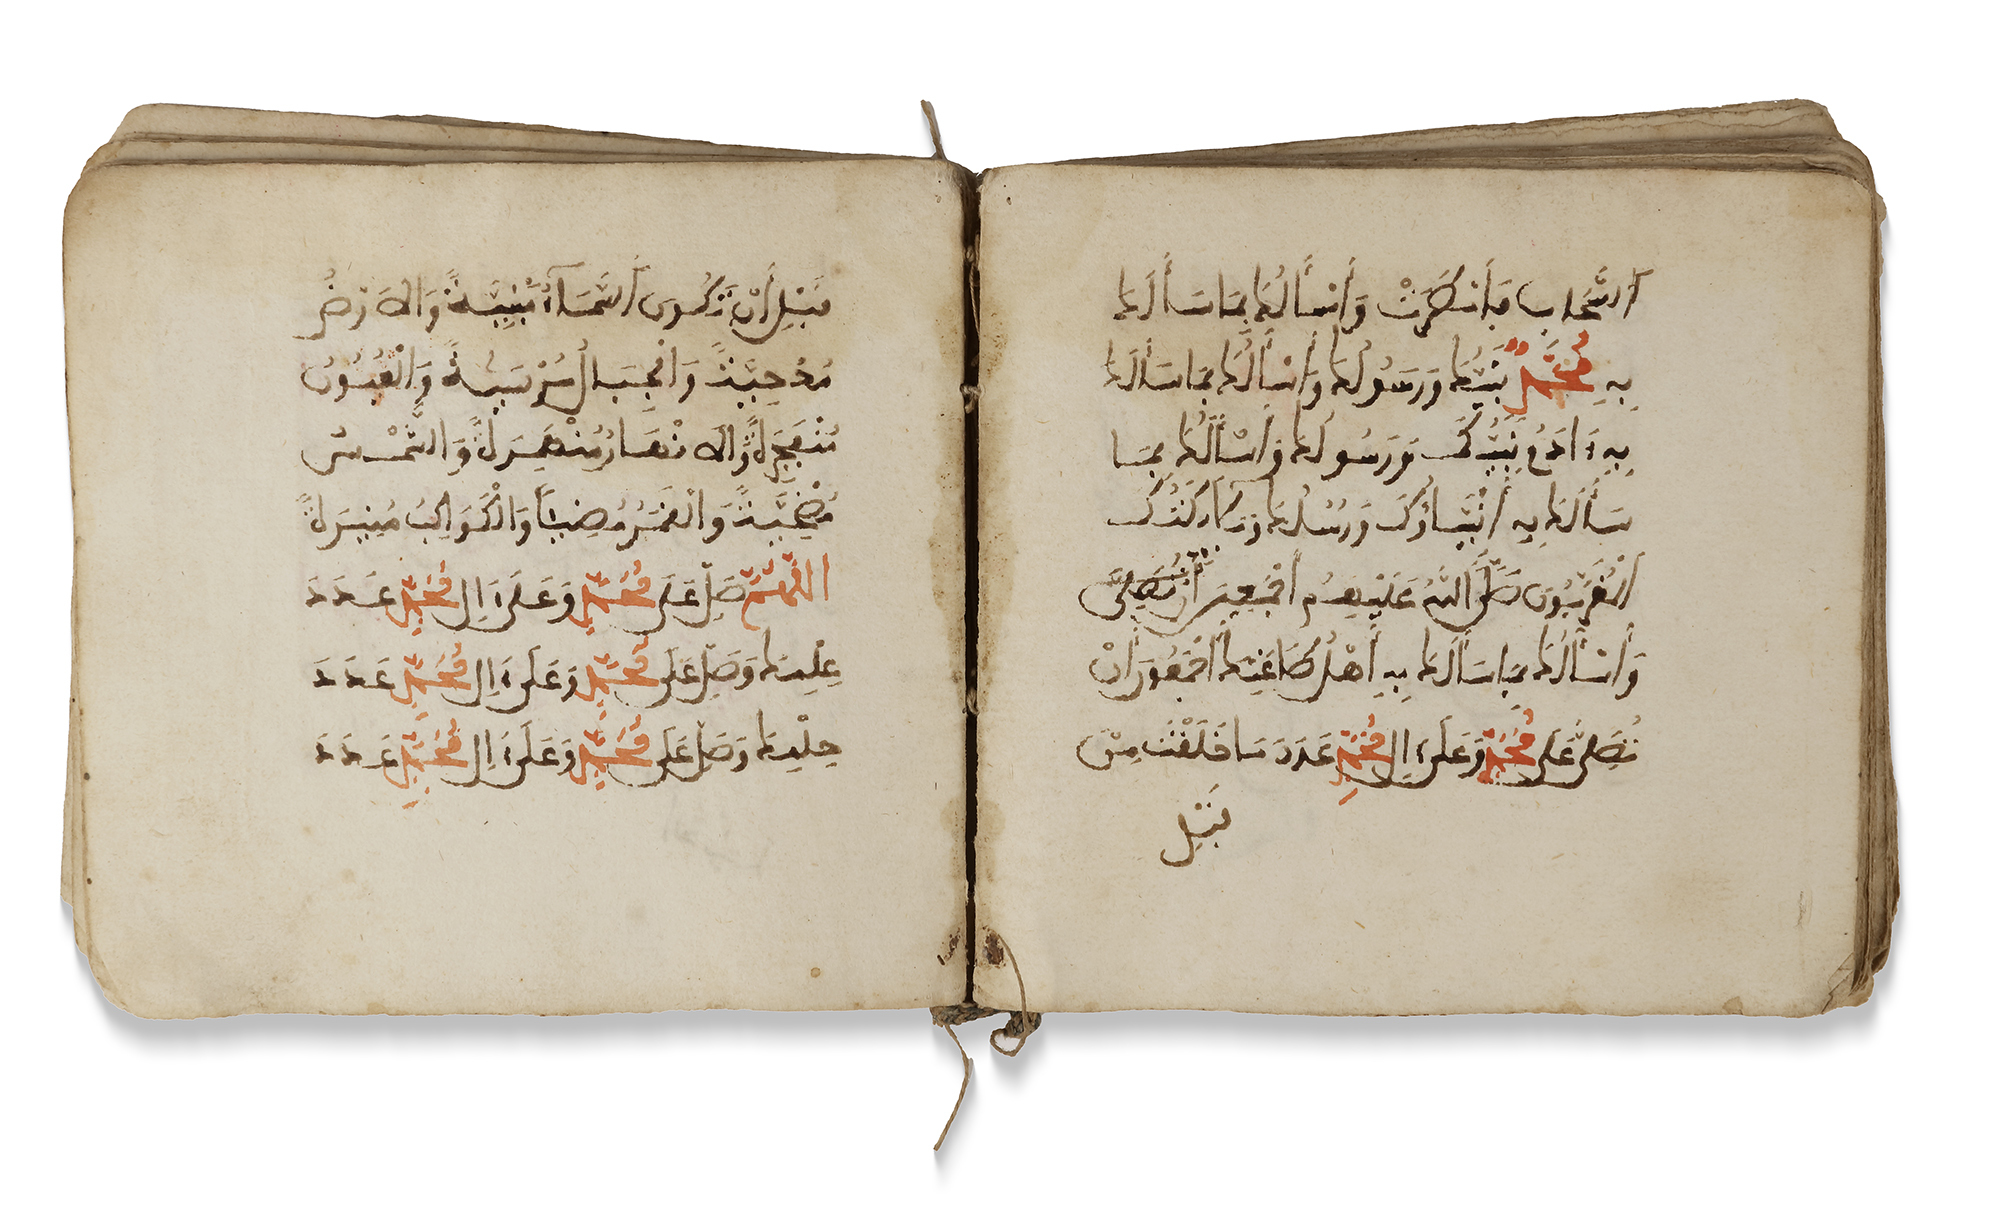 السَّحَابِ فَأَمْطَرَتْ وَأَسْأَلُكَ بِمَا سَأَلَكَ
بِهِ مُحَمَّدٌ نَبِيُّكَ وَرَسُولُكَ وَأَسْأَلُكَ بِمَا سَأَلَكَ
بِهِ ءَادَمُ نَبِيُّكَ وَرَسُولُكَ وَأَسْأَلُكَ بِمَا
سَأَلَكَ بِهِ أَنْبِيَاؤُكَ وَرُسُلُكَ وَمَلَآئِكَتُكَ
الْمُقَرَّبُونَ صَلَّى اللَّهُ عَلَيْهِمْ أَجْمَعِينَ
وَأَسْأَلُكَ بِمَا سَأَلَكَ بِهِ أَهْلُ طَاعَتِكَ أَجْمَعُونَ أَنْ
تُصَلِّيَ عَلَى مُحَمَّدٍ وَعَلَىٰ ءَالِ مُحَمَّدٍ عَدَدَ مَا خَلَقْتَ مِنْ
قَبْلِ
قَبْلِ أَنْ تَكُونَ السَّمَآءُ مَبْنِيَّةً وَالْأَرْضُ
مَدْحِيَّةً وَالْجِبَالُ مُرْسِيَةً وَالْعُيُونُ
مُنْفَجِرَةً وَالْأَنْهَارُ مُنْهَمِرَةً وَالشَّمْسُ
مُضْحِيَّةً وَالْقَمَرُ مُضِيئًا وَالْكَوَاكِبُ مُنِيرَةً
اللَّهُمَّ صَلِّ عَلَى مُحَمَّدٍ وَعَلَىٰ ءَالِ مُحَمَّدٍ عَدَدَ
عِلْمِكَ وَصَلِّ عَلَى مُحَمَّدٍ وَعَلَىٰ ءَالِ مُحَمَّدٍ عَدَدَ
حِلْمِكَ وَصَلِّ عَلَى مُحَمَّدٍ وَعَلَىٰ ءَالِ مُحَمَّدٍ عَدَدَ